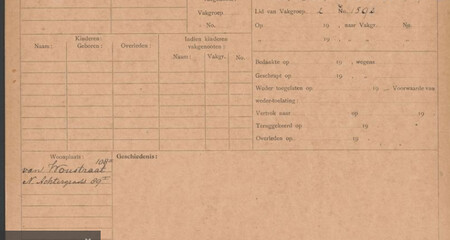 Vakgroep:
No.
Kinderen:
Naam: Geboren: Overleden:
Indien kinderen
vakgenooten:
Naam: Vakgr. No.
Lid van Vakgroep. 2 No.
Op 19 , naar Vakgr. No.
„ „ 19 „ „ „
Bedankte op 19 , wegens
Geschrapt op 19 „
Weder toegelaten op 19 . Voorwaarde van
wedertoelating:
Vertrok naar op 19
Teruggekeerd op 19
Overleden op 19
Woonplaats
Geschiedenis:
van